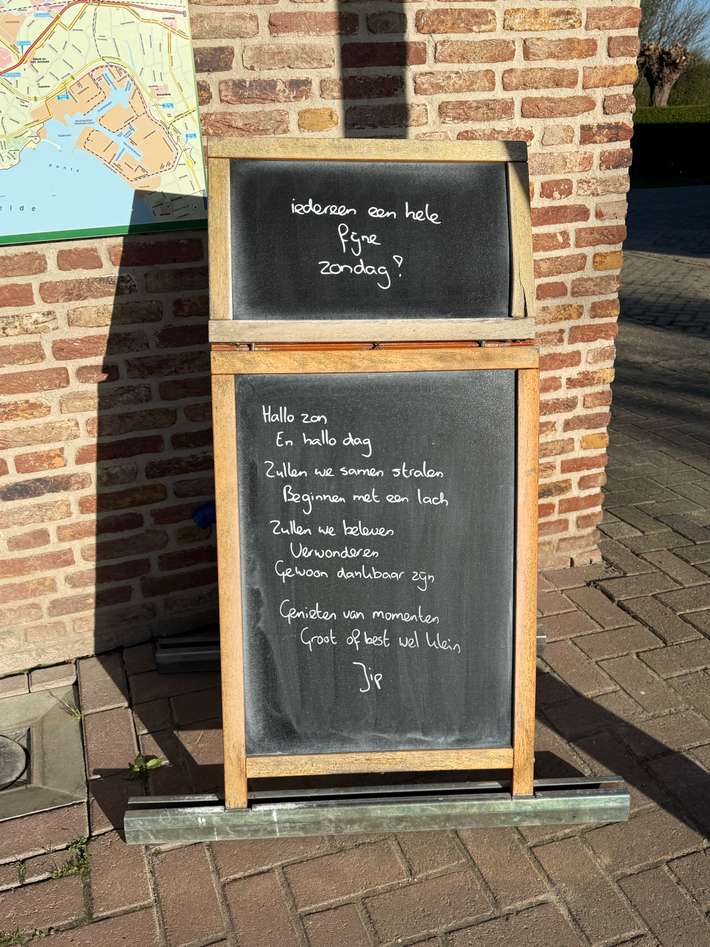 iedereen een hele
fijne
zondag!
Hallo zon
En hallo dag
Zullen we samen stralen
Beginnen met een lach
Zullen we beleven
Verwonderen
Gewoon dankbaar zijn
Genieten van momenten
Groot of best wel klein
Jip